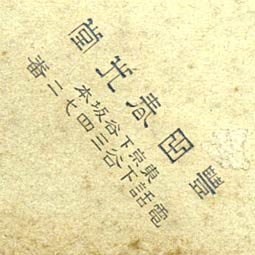 豐春光堂
東京下谷坂本
電話下谷三四七二番